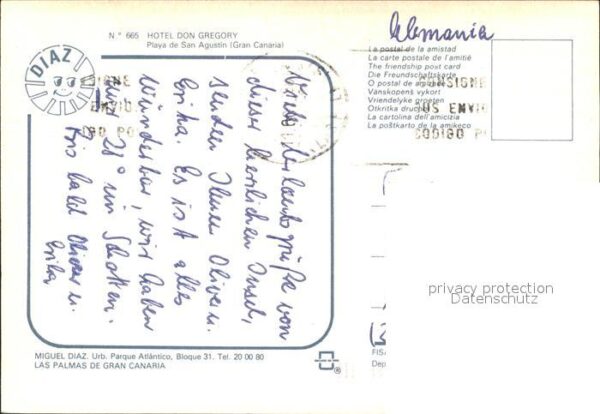 N° 665 HOTEL DON GREGORY
Playa de San Agustin (Gran Canaria)
DIAZ
Alemania
La postal de la amistad
La carte postale de l'amitié
The friendship post card
Die Freundschaftskarte
O postal de amizade
Vänskapens vykort
Vriendelyke groeten
Otkritka druzhby
La cartolina dell'amicizia
La poŝtkarto de la amikeco
CONSIGNE
US ENVIO
CODIGO PO
Viele Urlaubsgrüße von
dieser herrlichen Insel,
senden Ihnen Oliver u.
Erika. Es ist alles
wunderbar, wir haben
28° im Schatten.
Bis bald Oliver u.
Erika
privacy protection
Datenschutz
MIGUEL DIAZ. Urb. Parque Atlántico, Bloque 31. Tel. 20 00 80
LAS PALMAS DE GRAN CANARIA
®
FISA
Dep